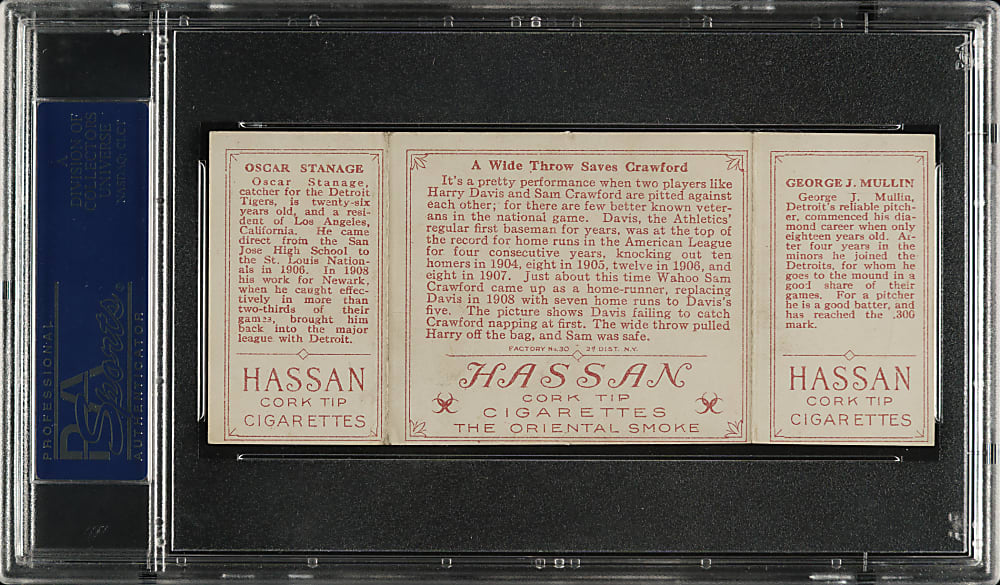 A
DIVISION OF
COLLECTORS
UNIVERSE
NASDAQ: CLCT
PROFESSIONAL
PSA
Sports
AUTHENTICATOR
OSCAR STANAGE
Oscar Stanage,
catcher for the Detroit
Tigers, is twenty-six
years old, and a resi-
dent of Los Angeles,
California. He came
direct from the San
Jose High School to
the St. Louis Nation-
als in 1906. In 1908
his work for Newark,
when he caught effec-
tively in more than
two-thirds of their
games, brought him
back into the major
league with Detroit.
HASSAN
CORK TIP
CIGARETTES
A Wide Throw Saves Crawford
It's a pretty performance when two players like
Harry Davis and Sam Crawford are pitted against
each other; for there are few better known veter-
ans in the national game. Davis, the Athletics'
regular first baseman for years, was at the top of
the record for home runs in the American League
for four consecutive years, knocking out ten
homers in 1904, eight in 1905, twelve in 1906, and
eight in 1907. Just about this time Wahoo Sam
Crawford came up as a home-runner, replacing
Davis in 1908 with seven home runs to Davis's
five. The picture shows Davis failing to catch
Crawford napping at first. The wide throw pulled
Harry off the bag, and Sam was safe.
FACTORY No. 30 - 2d DIST. N.Y.
HASSAN
CORK TIP
CIGARETTES
THE ORIENTAL SMOKE
GEORGE J. MULLIN
George J. Mullin,
Detroit's reliable pitch-
er, commenced his dia-
mond career when only
eighteen years old. Af-
ter four years in the
minors he joined the
Detroits, for whom he
goes to the mound in a
good share of their
games. For a pitcher
he is a good batter, and
has reached the .300
mark.
HASSAN
CORK TIP
CIGARETTES